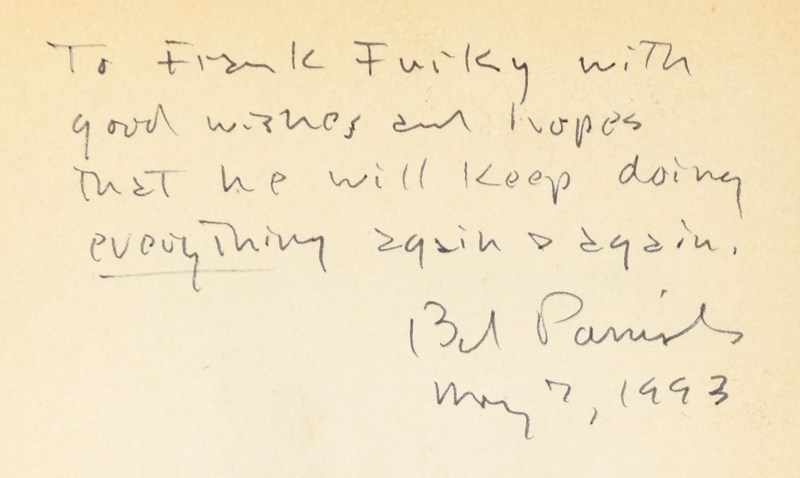 To Frank Furky with
good wishes and hopes
that he will keep doing
everything again & again.
Bd Parrish
May 7, 1993